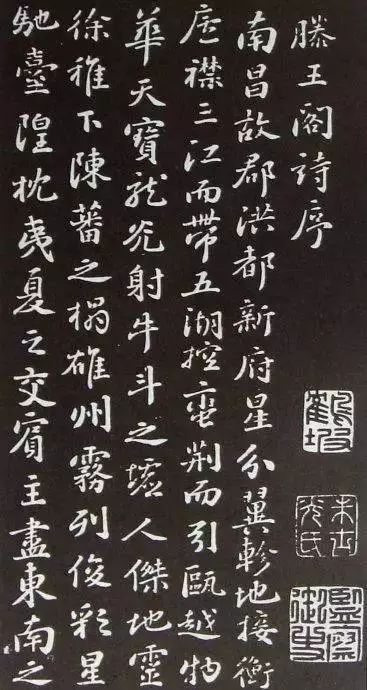 滕王閣詩序
南昌故郡洪都新府星分翼軫地接衡
庐襟三江而帶五湖控蛮荊而引甌越物
華天寶龙光射牛斗之墟人傑地靈
徐稚下陳蕃之榻雄州霧列俊彩星
馳臺隍枕夷夏之交賓主盡東南之
鶴坡
監察御史